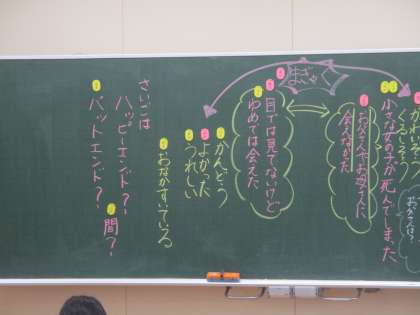 かわいそう
くるしそう
小さな女の子が死んでしまった
おかさんは?
お父さんやお母さんに
会えなかった
まぎゃく
目では見てないけど
ゆめでは会えた
かんどう
よかった
うれしい
おなかすいている
さいごは
ハッピーエンド?
間?
バットエンド?